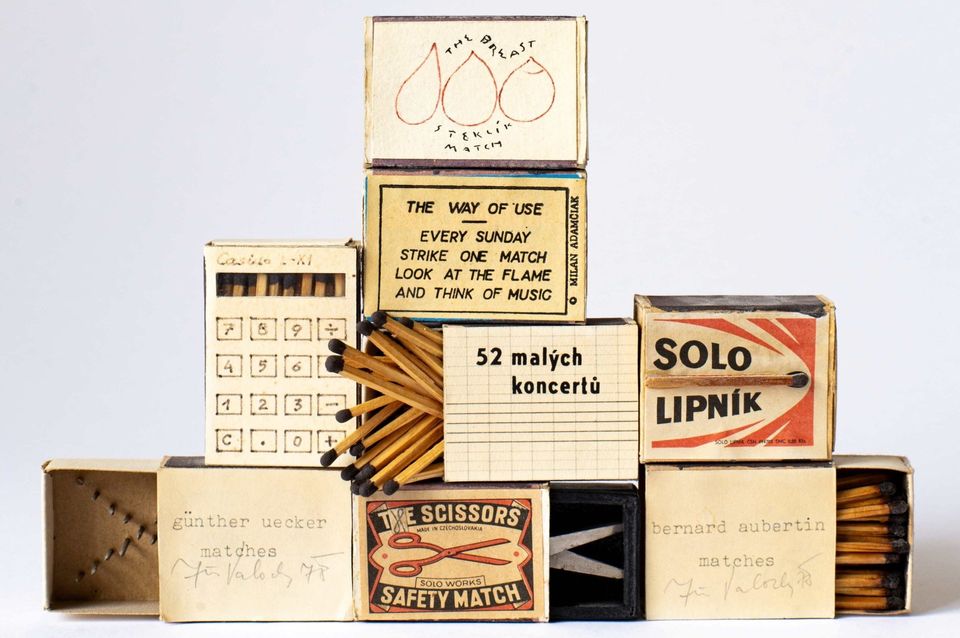 THE BREAST
STEKLÍK
MATCH
THE WAY OF USE
EVERY SUNDAY
STRIKE ONE MATCH
LOOK AT THE FLAME
AND THINK OF MUSIC
© MILAN ADAMČIAK
7 8 9 ÷
4 5 6 ×
1 2 3 -
C . 0 +
52 malých
koncertů
SOLO
LIPNÍK
SOLO LIPNÍK
günther uecker
matches
Jiří Valoch 78
THE SCISSORS
MADE IN CZECHOSLOVAKIA
SOLO WORKS
SAFETY MATCH
bernard aubertin
matches
Jiří Valoch 78